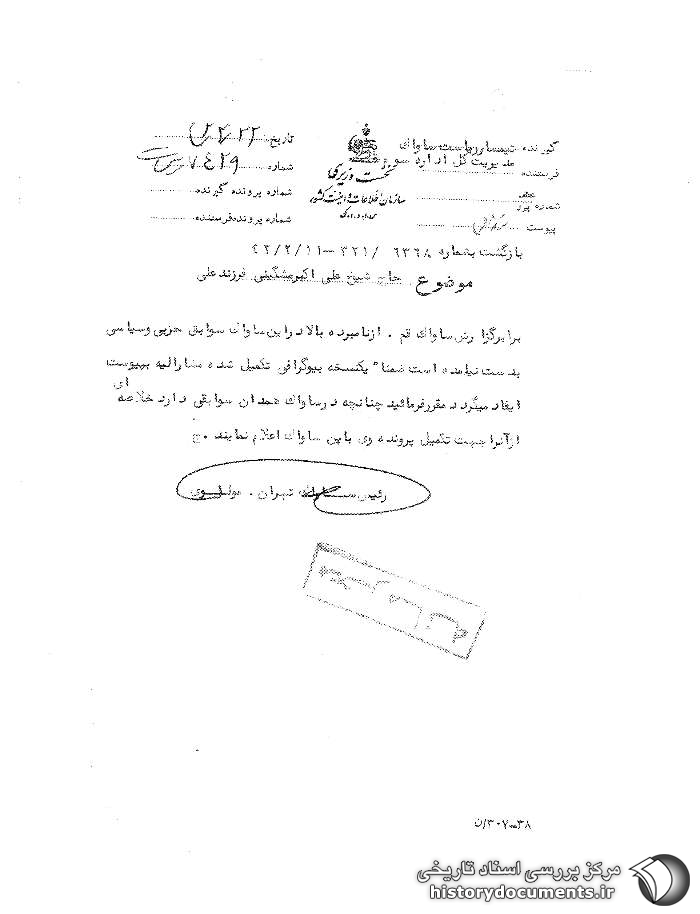 گیرنده تیمسار ریاست ساواک
مدیریت کل اداره سوم
فرستنده
شماره پیرو
پیوست
نخست وزیری
سازمان اطلاعات و امنیت کشور
تاریخ
شماره ۷۴۲۹
شماره پرونده گیرنده
شماره پرونده فرستنده
بازگشت بشماره ۶۳۶۸ /۳۲۱-۴۲/۲/۱۱
موضوع حاج شیخ علی اکبر مشگینی فرزند علی
برابر گزارش ساواک قم . از نامبرده بالا در این ساواک سوابق حزبی و سیاسی
بدست نیامده است ضمناً یکنسخه بیوگرافی تکمیل شده مشارالیه بپیوست
ایفاد میگردد مقرر فرمائید چنانچه در ساواک همدان سوابقی دارد خلاصه ای
از آنرا جهت تکمیل پرونده وی باین ساواک اعلام نمایند . ج
رئیس ساواک تهران . مولوی
۳۰۷-۳۸/ن
مرکز بررسی اسناد تاریخی
historydocuments.ir